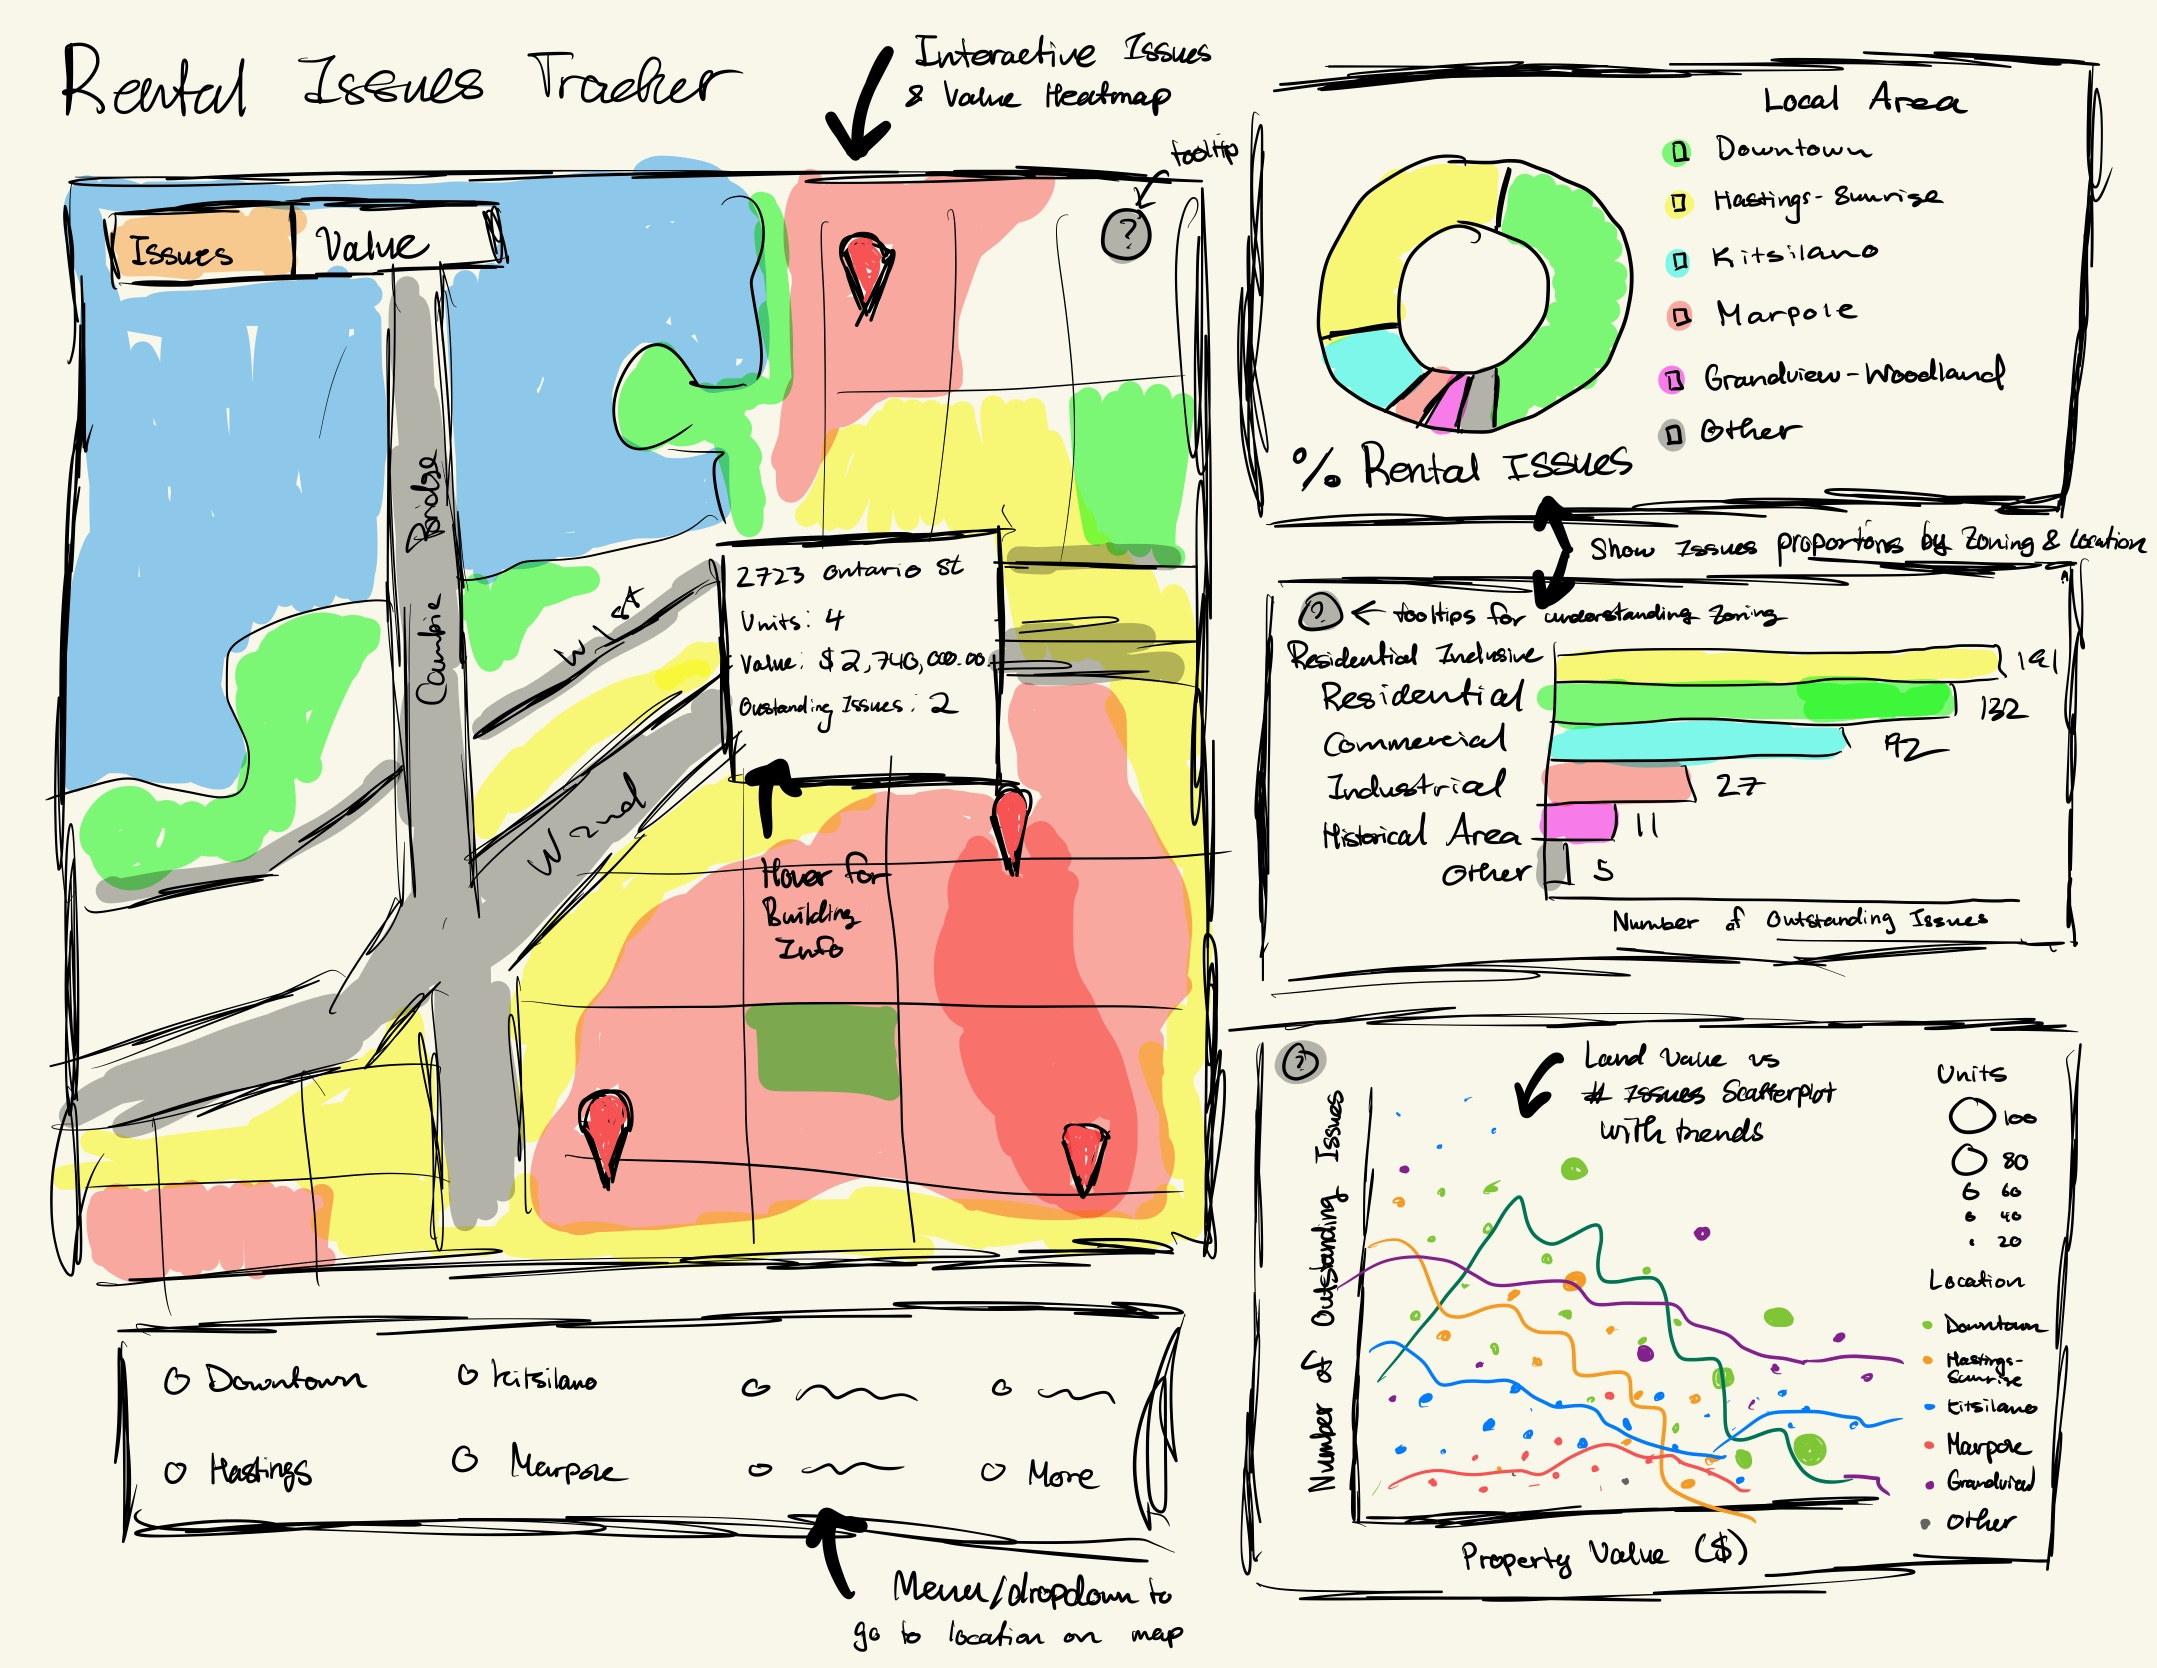 Rental Issues Tracker
Interactive Issues
& Value Heatmap
tooltip
Issues
Value
?
Cambie Bridge
W 1st
W 2nd
2723 Ontario St
Units: 4
Value: $2,740,000.00
Outstanding Issues: 2
Hover for
Building
Info
Downtown
Kitsilano
Hastings
Marpole
More
Menu/dropdown to
go to location on map
Local Area
Downtown
Hastings-Sunrise
Kitsilano
Marpole
Grandview-Woodland
Other
% Rental Issues
Show Issues proportons by Zoning & Location
? ← tooltips for understanding Zoning
Residential Inclusive
Residential 132
Commercial 92
Industrial 27
Historical Area 11
Other 5
Number of Outstanding Issues
?
Land Value vs
# Issues Scatterplot
with trends
Number of Outstanding Issues
Property Value ($)
Units
100
80
60
40
20
Location
Downtown
Hastings-
Sunrise
Kitsilano
Marpole
Other